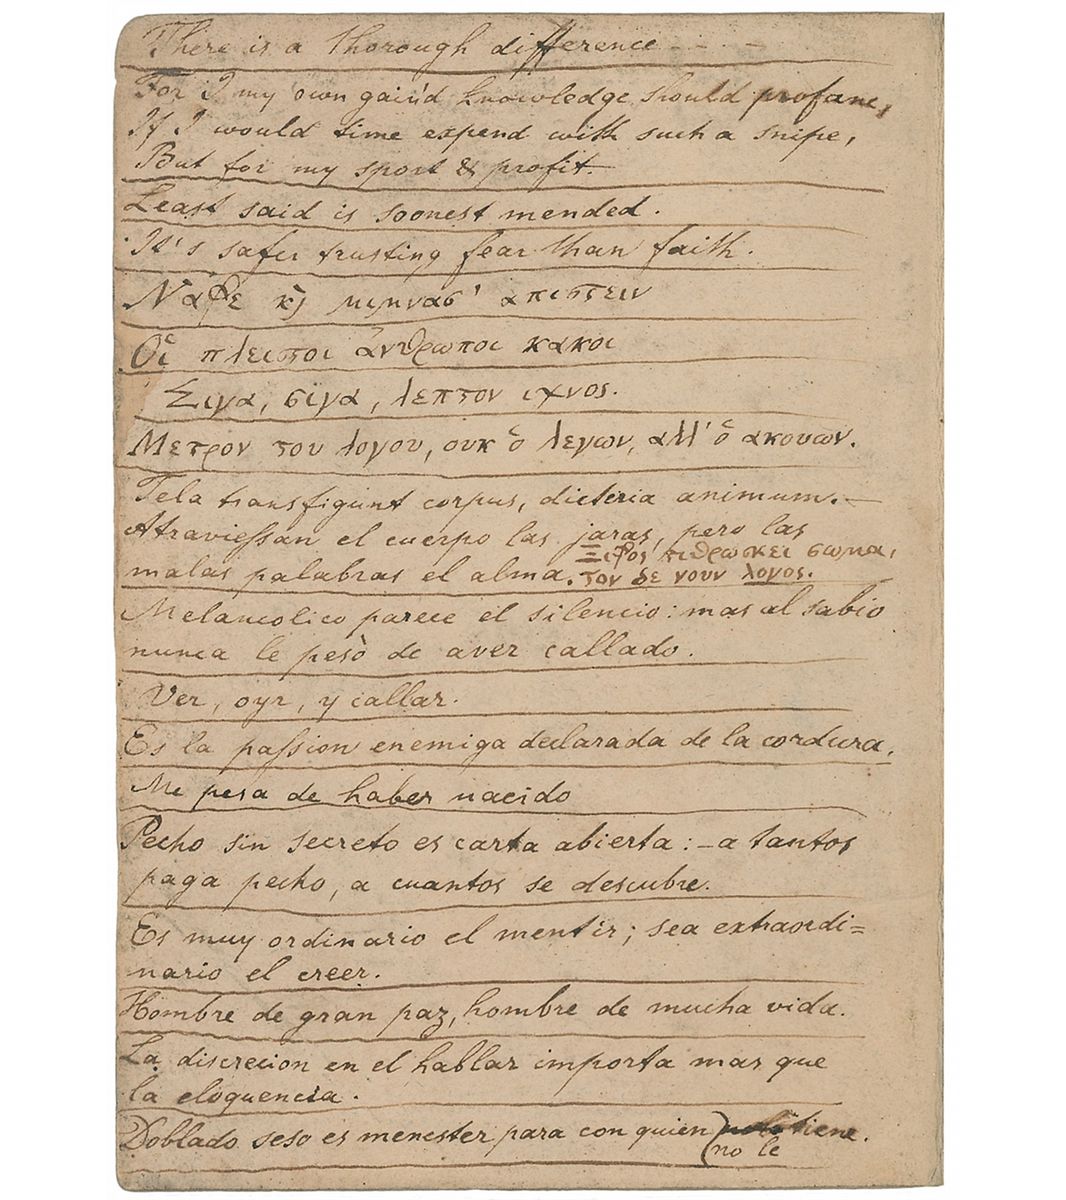 There is a thorough difference - - - -
For I my own gain'd knowledge should profane,
If I would time expend with such a snipe,
But for my sport & profit.
Least said is soonest mended.
It's safer trusting fear than faith.
Ναφε κ) μεμνασ' απιστειν
Οἱ πλειστοι ἀνθρωποι κακοι
Σιγα, σιγα, λεπτον ιχνος.
Μετρον του λογου, ουκ ὁ λεγων, αλλ' ὁ ακουων.
Tela transfigunt corpus, dicteria animum.—
Atraviessan el cuerpo las jaras, pero las
malas palabras el alma.
Ξιφος τιθρωσκει σωμα,
τον δε νουν λογος.
Melancolico parece el silencio: mas al sabio
nunca le pesò de aver callado.
Ver, oyr, y callar.
Es la passion enemiga declarada de la cordura.
Me pesa de haber nacido
Pecho sin secreto es carta abierta: – a tantos
paga pecho, a cuantos se descubre.
Es muy ordinario el mentir; sea extraordi=
nario el creer.
Hombre de gran paz, hombre de mucha vida.
La discrecion en el hablar importa mas que
la eloquencia.
Doblado seso es menester para con quien tiene.
(no le